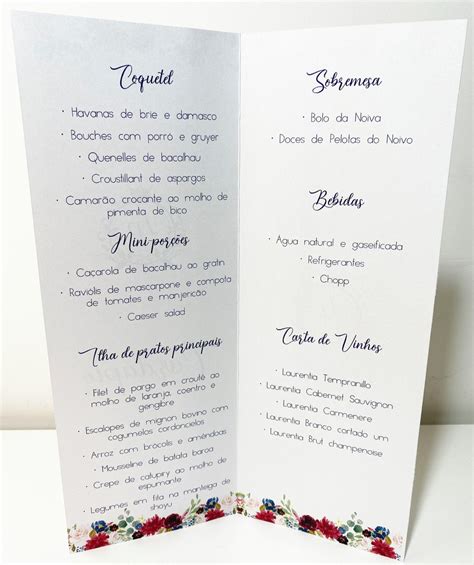 Coquetel
· Havanas de brie e damasco
· Bouches com porró e gruyer
· Quenelles de bacalhau
· Croustillant de aspargos
· Camarão crocante ao molho de
pimenta de bico
Mini-porções
· Caçarola de bacalhau ao gratin
· Raviólis de mascarpone e compota
de tomates e manjericão
· Caeser salad
Ilha de pratos principais
· Filet de pargo em crouté ao
molho de laranja, coentro e
gengibre
· Escalopes de mignon bovino com
cogumelos cordoncielos
· Arroz com brócolis e amêndoas
· Mousseline de batata baroa
· Crepe de catupiry ao molho de
espumante
· Legumes em fita na manteiga de
shoyu
Sobremesa
· Bolo da Noiva
· Doces de Pelotas do Noivo
Bebidas
· Agua natural e gaseificada
· Refrigerantes
· Chopp
Carta de Vinhos
· Laurentia Tempranillo
· Laurentia Cabernet Sauvignon
· Laurentia Carmenere
· Laurentia Branco cortado um
· Laurentia Brut champenoise